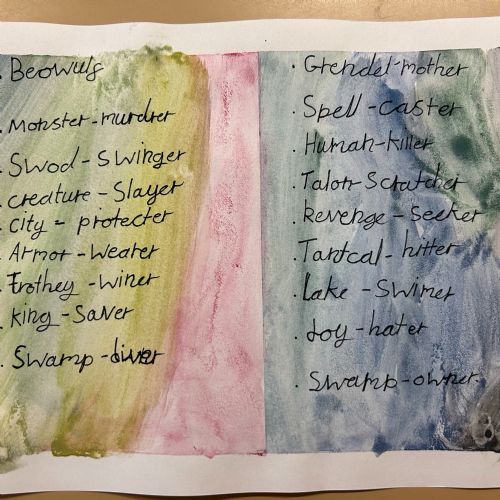 . Beowulf
. Monster-murdrer
. Swod-swinger
. creature-Slayer
. city-protecter
. Armor-Wearer
. Trothey-winer
. king-Saver
. Swamp-diver
. Grendel-mother
. Spell-caster
. Human-killer
. Talon-Scratcher
. Revenge-Seeker
. Tantcal-hitter
. Lake-Swimer
. Joy-hater
. Swamp-owner